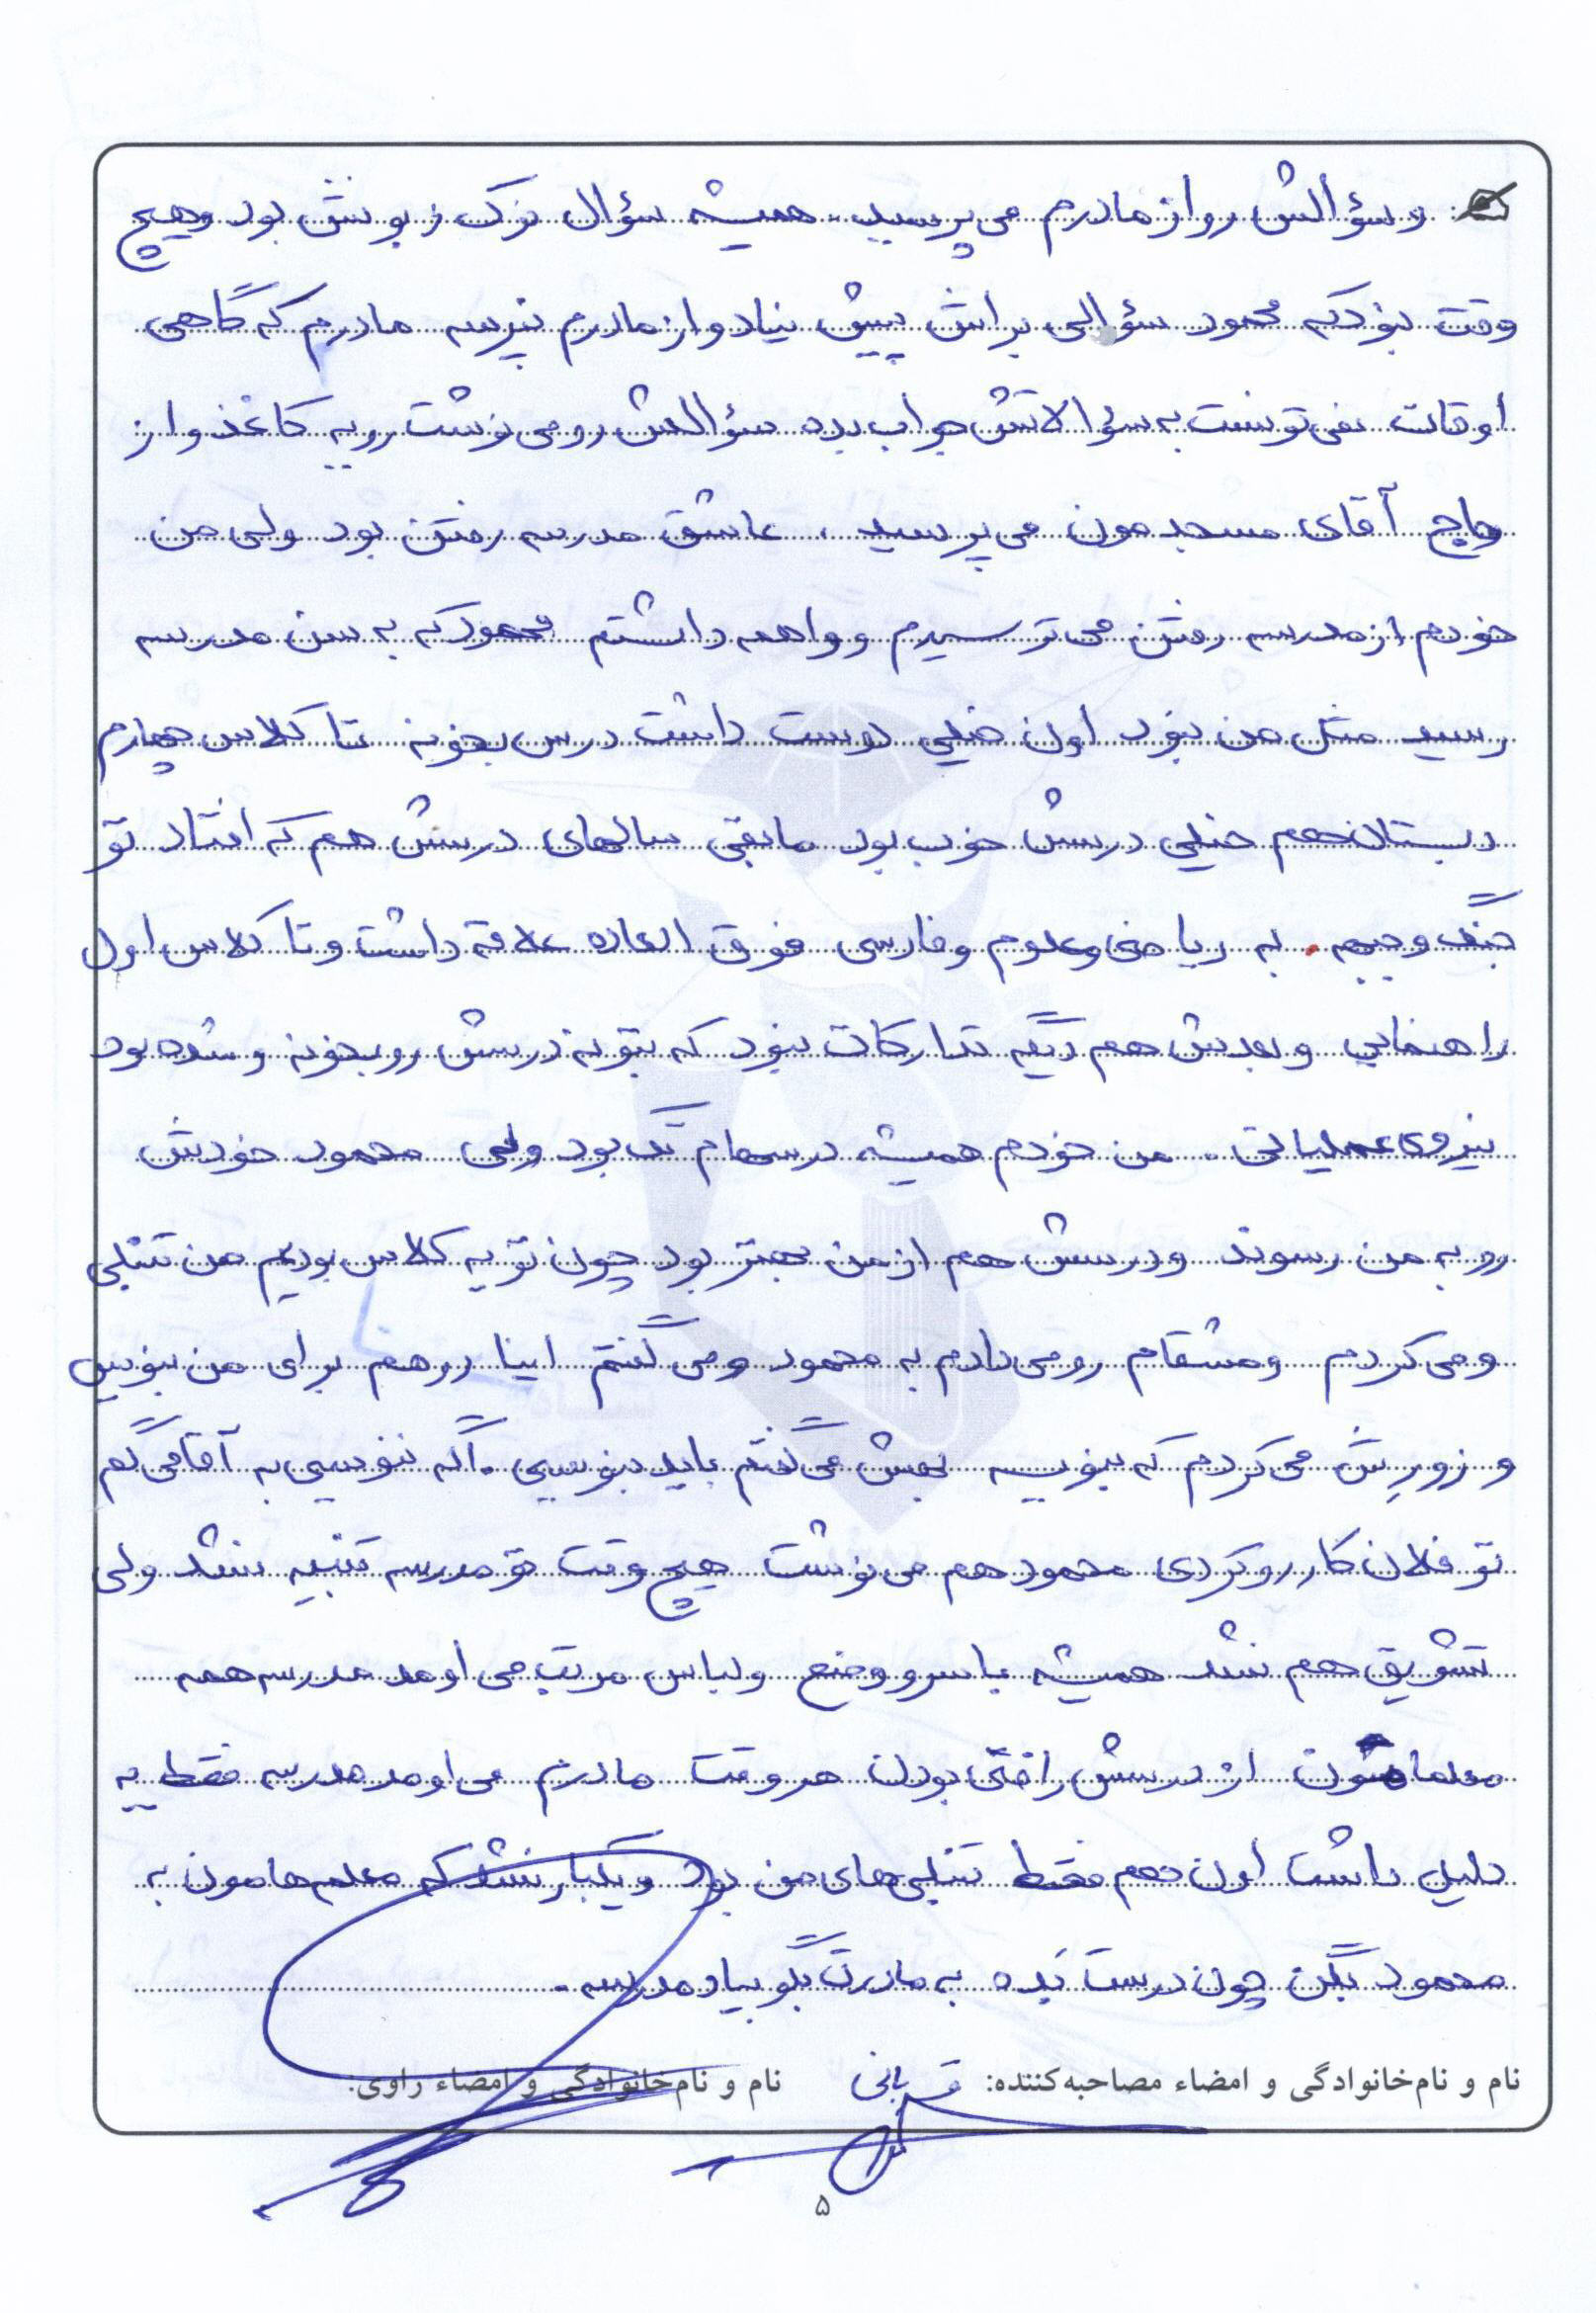 و سؤالش رو از مادرم می‌پرسید. همیشه سؤال نوک زبونش بود و هیچ
وقت نبود که محمود سؤالی براش پیش نیاد و از مادرم نپرسه مادرم که گاهی
اوقات نمی‌تونست به سؤالاتش جواب بده سؤالش رو می‌نوشت رو یه کاغذ و از
حاج آقای مسجدمون می‌پرسید، عاشق مدرسه رفتن بود ولی من
خودم از مدرسه رفتن می‌ترسیدم و واهمه داشتم محمود که به سن مدرسه
رسید مثل من نبود اون خیلی دوست داشت درس بخونه تا کلاس چهارم
دبستان هم خیلی درسش خوب بود مابقی سالهای درسش هم که افتاد تو
جنگ و جبهه. به ریاضی و علوم و فارسی فوق العاده علاقه داشت و تا کلاس اول
راهنمایی و بعدش هم دیگه تدارکات نبود که بتونه درسش رو بخونه و شده بود
نیروی عملیاتی. من خودم همیشه درسهام تک بود ولی محمود خودش
رو به من رسوند و درسش هم از من بهتر بود چون تو یه کلاس بودیم من تنبلی
و می‌کردم و مشقام رو می‌دادم به محمود و می‌گفتم اینا رو هم برای من بنویس
و زورش می‌کردم که بنویسه بهش می‌گفتم باید بنویسی. اگه ننویسی به آقا می‌گم
تو فلان کار رو کردی محمود هم می‌نوشت هیچ وقت تو مدرسه تنبیه نشد ولی
تشویق هم نشد همیشه با سر و وضع و لباس مرتب می‌اومد مدرسه همه
معلمامون از درسش راضی بودن هر وقت مادرم می‌اومد مدرسه فقط یه
دلیل داشت اون هم فقط تنبلی‌های من بود و یکبار نشد که معلم‌هامون به
محمود بگن چون درست بده به مادرت بگو بیاد مدرسه.
نام و نام‌خانوادگی و امضاء مصاحبه‌کننده: قربانی نام و نام‌خانوادگی و امضاء راوی:
۵